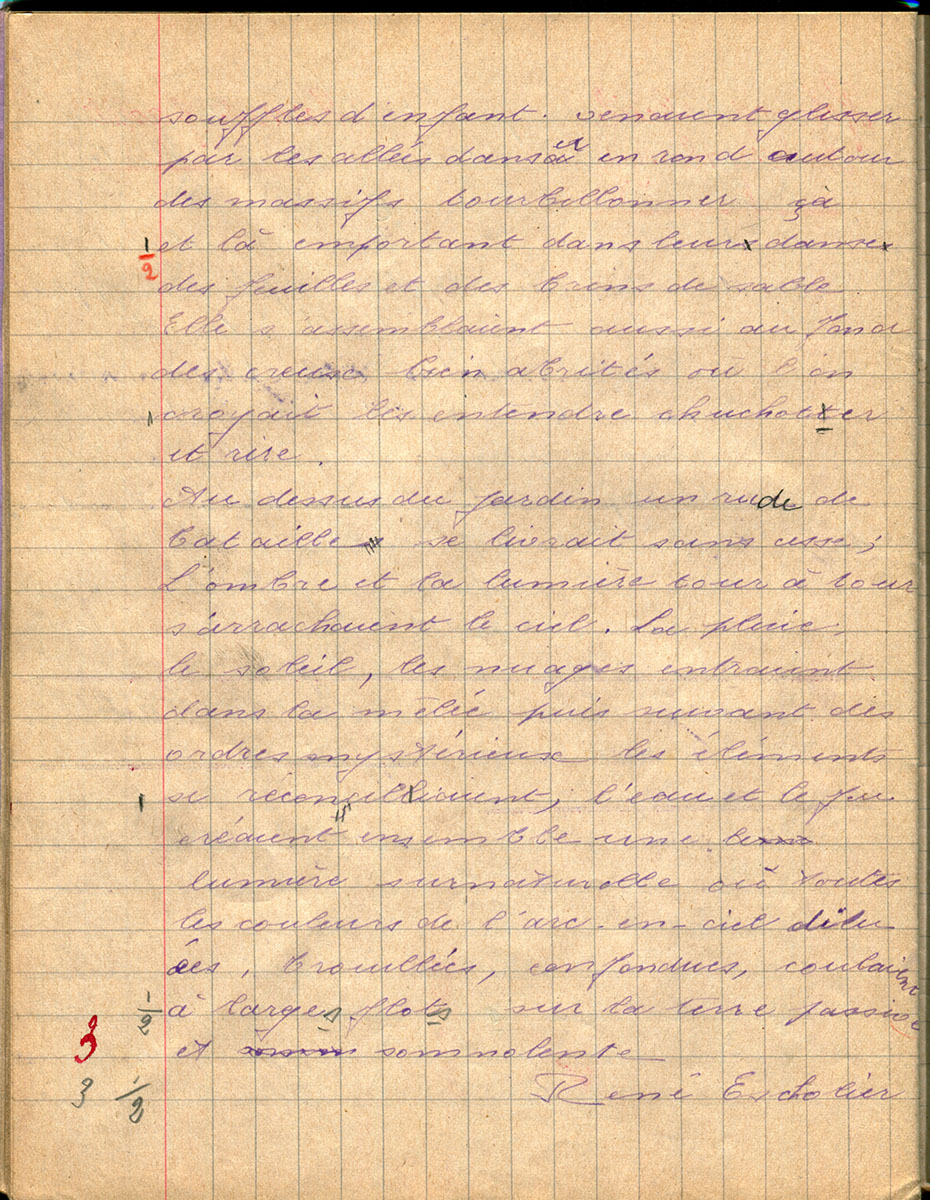 souffles d'enfant. venaient glisser
par les allées dansar en rond autour
des massifs tourbillonner çà
1/2 et là emportant dans leurs danses
des feuilles et des brins de sable.
Elle s'assemblaient aussi au fond
des creuse bien abrités ou l'on
croyait les entendre chuchotter
et rire.
Au dessus du jardin un rude de
bataille se livrait sans cesse;
L'ombre et la lumière tour à tour
s'arrachaient le ciel. La pluie,
le soleil, les nuages entraient
dans la mêlée puis suivant des
ordres mystérieux les éléments
se réconcilliaient, l'eau et le feu
créaient ensemble une
lumière surnaturelle où toutes
les couleurs de l'arc-en-ciel dilu
ées, brouillées, confondues, coulaient
1/2 à larges flots sur la terre passive
3 et somnolente
3 1/2 René Escholier